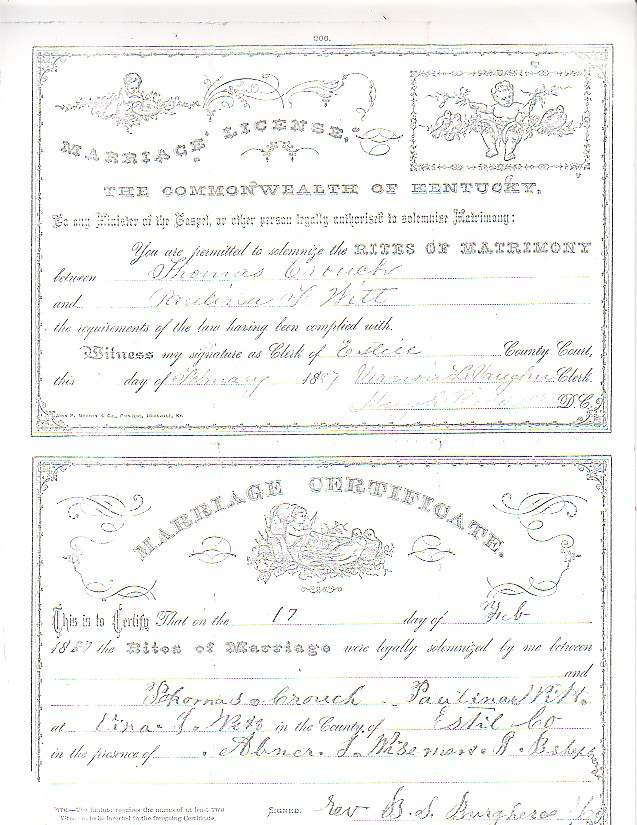 206.
MARRIAGE LICENSE,
THE COMMONWEALTH OF KENTUCKY,
To any Minister of the Gospel, or other person legally authorised to solemnise Matrimony:
You are permitted to solemnize the RITES OF MATRIMONY
between Thomas Crouch
and Paulina T Witt
the requirements of the law having been complied with.
Witness my signature as Clerk of Estill County Court,
this day of February 1887 Vernon L Vaughn Clerk.
D.C.
MARRIAGE CERTIFICATE.
This is to Certify That on the 17 day of Feb
1887 the Rites of Marriage were legally solemnized by me between
and
Thomas Crouch Paulina Witt.
at T. Witt in the County of Estil Co
in the presence of Abner
NOTE—The Statute requires the names of at least TWO
Witnesses to be inserted in the foregoing Certificate.
SIGNED, Rev B. S.